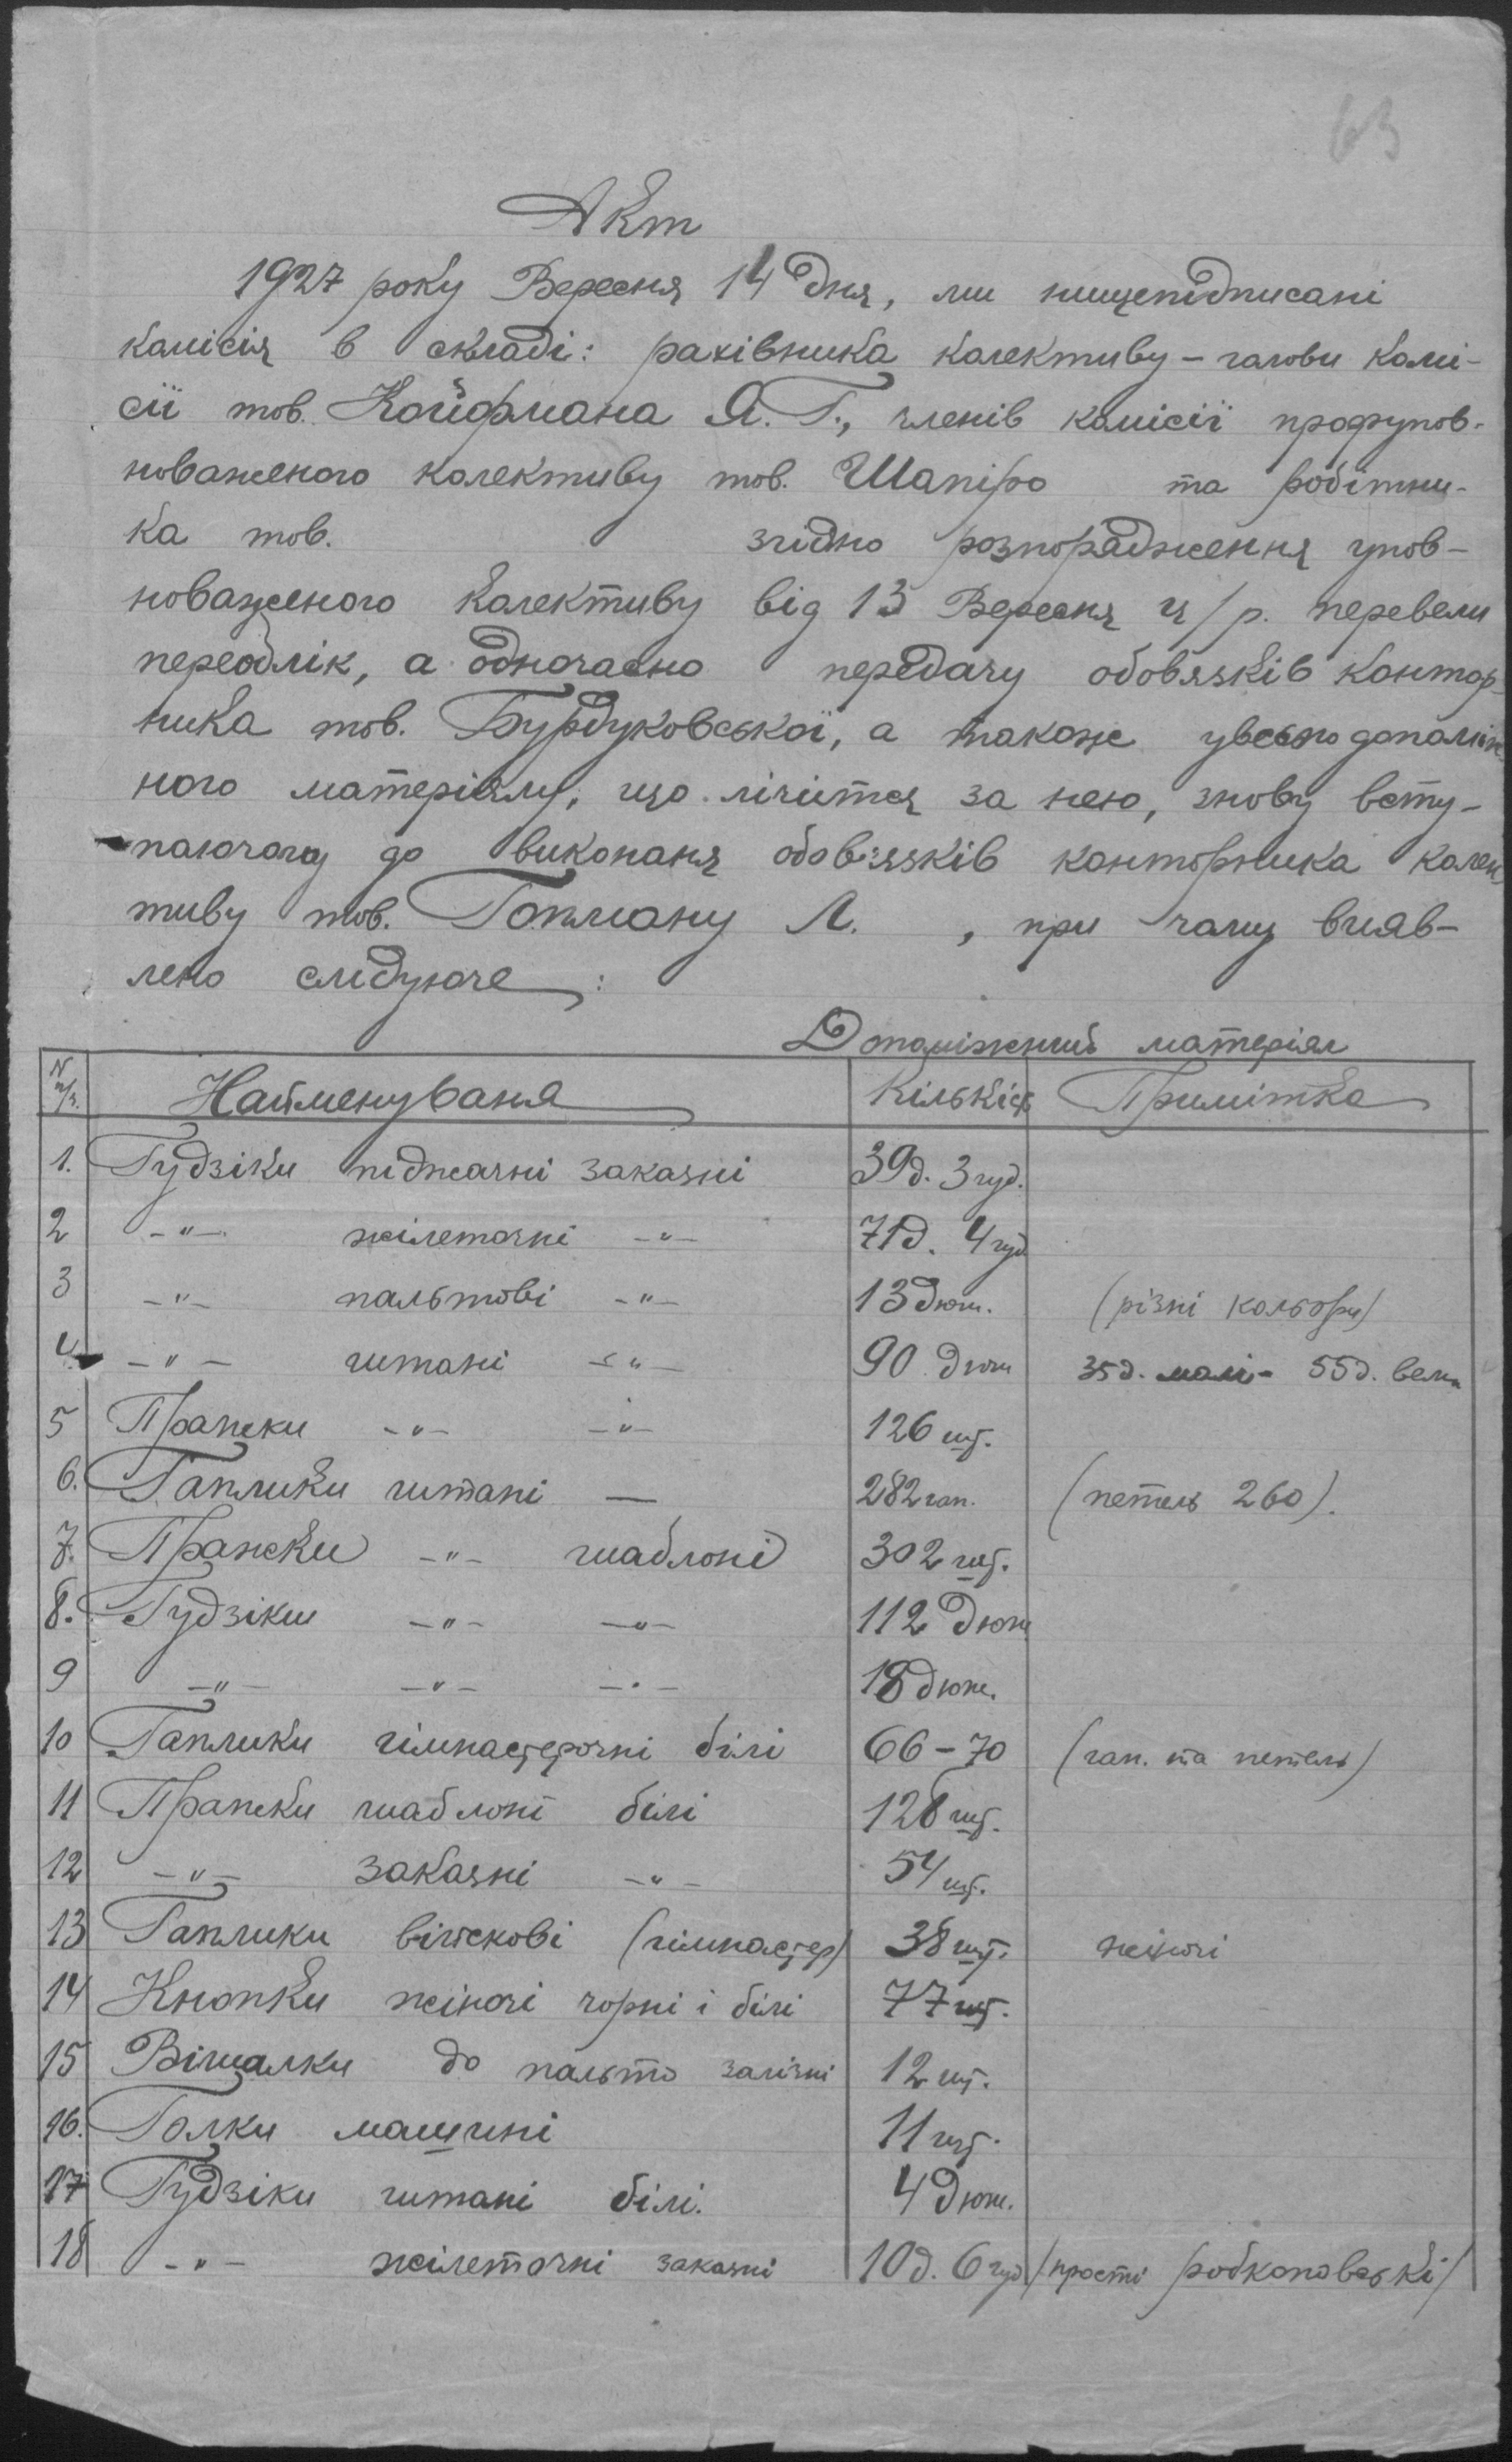 63
Акт
1927 року Вересня 14 дня, ми нищепідписані
комісія в складі: рахівника колективу – голови комі-
сії тов. Койфмана Я. Г., членів комісії профупов-
новаженого колективу тов. Шапіро та робітни-
ка тов. згідно розпорядження упов-
новаженого колективу від 13 Вересня ц/р. перевели
переоблік, а одночасно передачу обовязків контор-
ника тов. Бурдуковської, а также увесь допоміж
ного матеріялу, що лічится за нею, знову всту-
паючого до виконаня обовязків конторника колек
тиву тов. Гопману Л. , при чому вияв-
лено слідуюче :
Допоміжний матеріял
N п/ч. Найменуваня Кількіст Примітка
1. Гудзіки піджачні заказні 39д. 3 гуд.
2 -"- жілеточні -"- 71д. 4 гуд
3 -"- пальтові -"- 13 дюж. (різні кольори)
4. -"- штані -"- 90 дюж 35д. малі - 55д. вели
5 Пряжки -"- -"- 126 шт.
6. Гаплики штані — 282 гап. (петель 260).
7. Пряжки -"- шаблоні 302 шт.
8. Гудзіки -"- -"- 112 дюж
9 -"- -"- -"- 18 дюж.
10 Гаплики гімнастерочні білі 66 – 70 (гап. та петель)
11 Пряжки шаблоні білі 128 шт.
12 -"- заказні -"- 54 шт.
13 Гаплики війскові (гімнастер) 38 шт. жіночі
14 Кнопки жіночі чорні і білі 77 шт.
15 Вішалки до пальто залізні 12 шт.
16. Голки машині 11 шт.
17 Гудзіки штані білі. 4 дюж.
18 -"- жілеточні заказні 10д. 6 гуд /прості робкоповські/